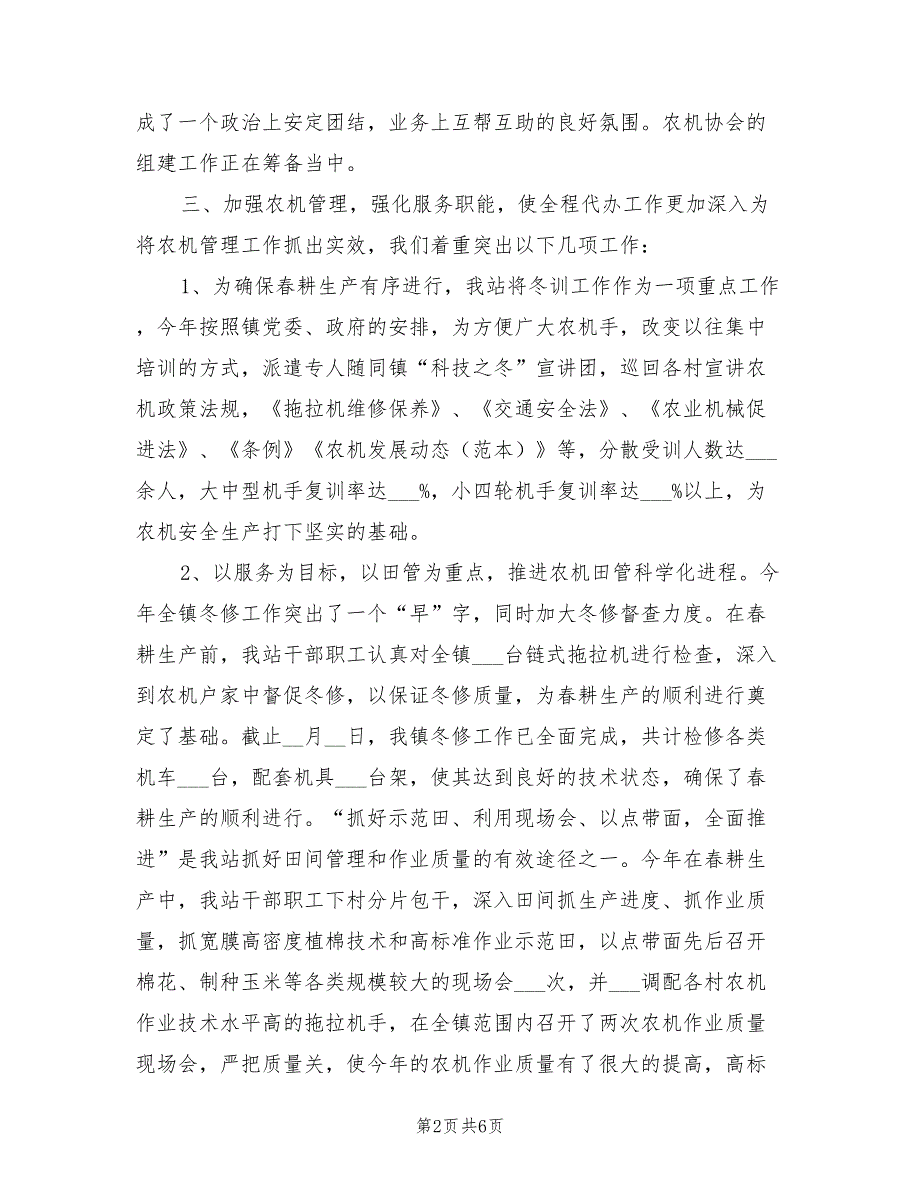 成了一个政治上安定团结，业务上互帮互助的良好氛围。农机协会的
组建工作正在筹备当中。
三、加强农机管理，强化服务职能，使全程代办工作更加深入为
将农机管理工作抓出实效，我们着重突出以下几项工作：
1、为确保春耕生产有序进行，我站将冬训工作作为一项重点工作
，今年按照镇党委、政府的安排，为方便广大农机手，改变以往集中
培训的方式，派遣专人随同镇“科技之冬”宣讲团，巡回各村宣讲农
机政策法规，《拖拉机维修保养》、《交通安全法》、《农业机械促
进法》、《条例》《农机发展动态（范本）》等，分散受训人数达___
余人，大中型机手复训率达___%，小四轮机手复训率达___%以上，为
农机安全生产打下坚实的基础。
2、以服务为目标，以田管为重点，推进农机田管科学化进程。今
年全镇冬修工作突出了一个“早”字，同时加大冬修督查力度。在春
耕生产前，我站干部职工认真对全镇___台链式拖拉机进行检查，深入
到农机户家中督促冬修，以保证冬修质量，为春耕生产的顺利进行奠
定了基础。截止__月__日，我镇冬修工作已全面完成，共计检修各类
机车___台，配套机具___台架，使其达到良好的技术状态，确保了春
耕生产的顺利进行。“抓好示范田、利用现场会、以点带面，全面推
进”是我站抓好田间管理和作业质量的有效途径之一。今年在春耕生
产中，我站干部职工下村分片包干，深入田间抓生产进度、抓作业质
量，抓宽膜高密度植棉技术和高标准作业示范田，以点带面先后召开
棉花、制种玉米等各类规模较大的现场会___次，并___调配各村农机
作业技术水平高的拖拉机手，在全镇范围内召开了两次农机作业质量
现场会，严把质量关，使今年的农机作业质量有了很大的提高，高标
第2页 共6页